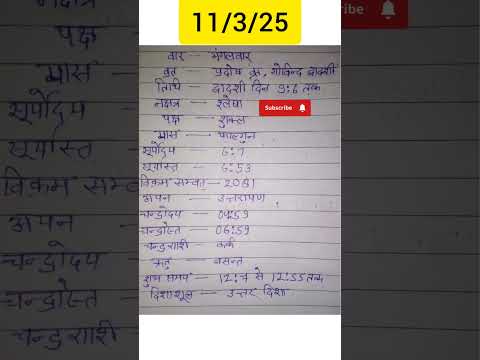 11/3/25
वार — मंगलवार
व्रत — प्रदोष व्रत, गोविन्द द्वादशी
तिथि — द्वादशी दिन 9:6 तक
नक्षत्र — श्लेषा
Subscribe
पक्ष — शुक्ल
मास — फाल्गुन
सूर्योदय — 6:7
सूर्यास्त — 6:53
विक्रम सम्वत् — 2081
अयन — उत्तरायण
चन्द्रोदय — 04:59
चन्द्रोस्त — 06:59
चन्द्रराशी — कर्क
ऋतु — वसन्त
शुभ समय — 12:7 से 12:55 तक
दिशाशूल — उत्तर दिशा
नक्षत्र
पक्ष
मास
सूर्योदय
सूर्यास्त
विक्रम सम्व
अयन
चन्द्रोदय
चन्द्रोस्त
चन्द्रराशी